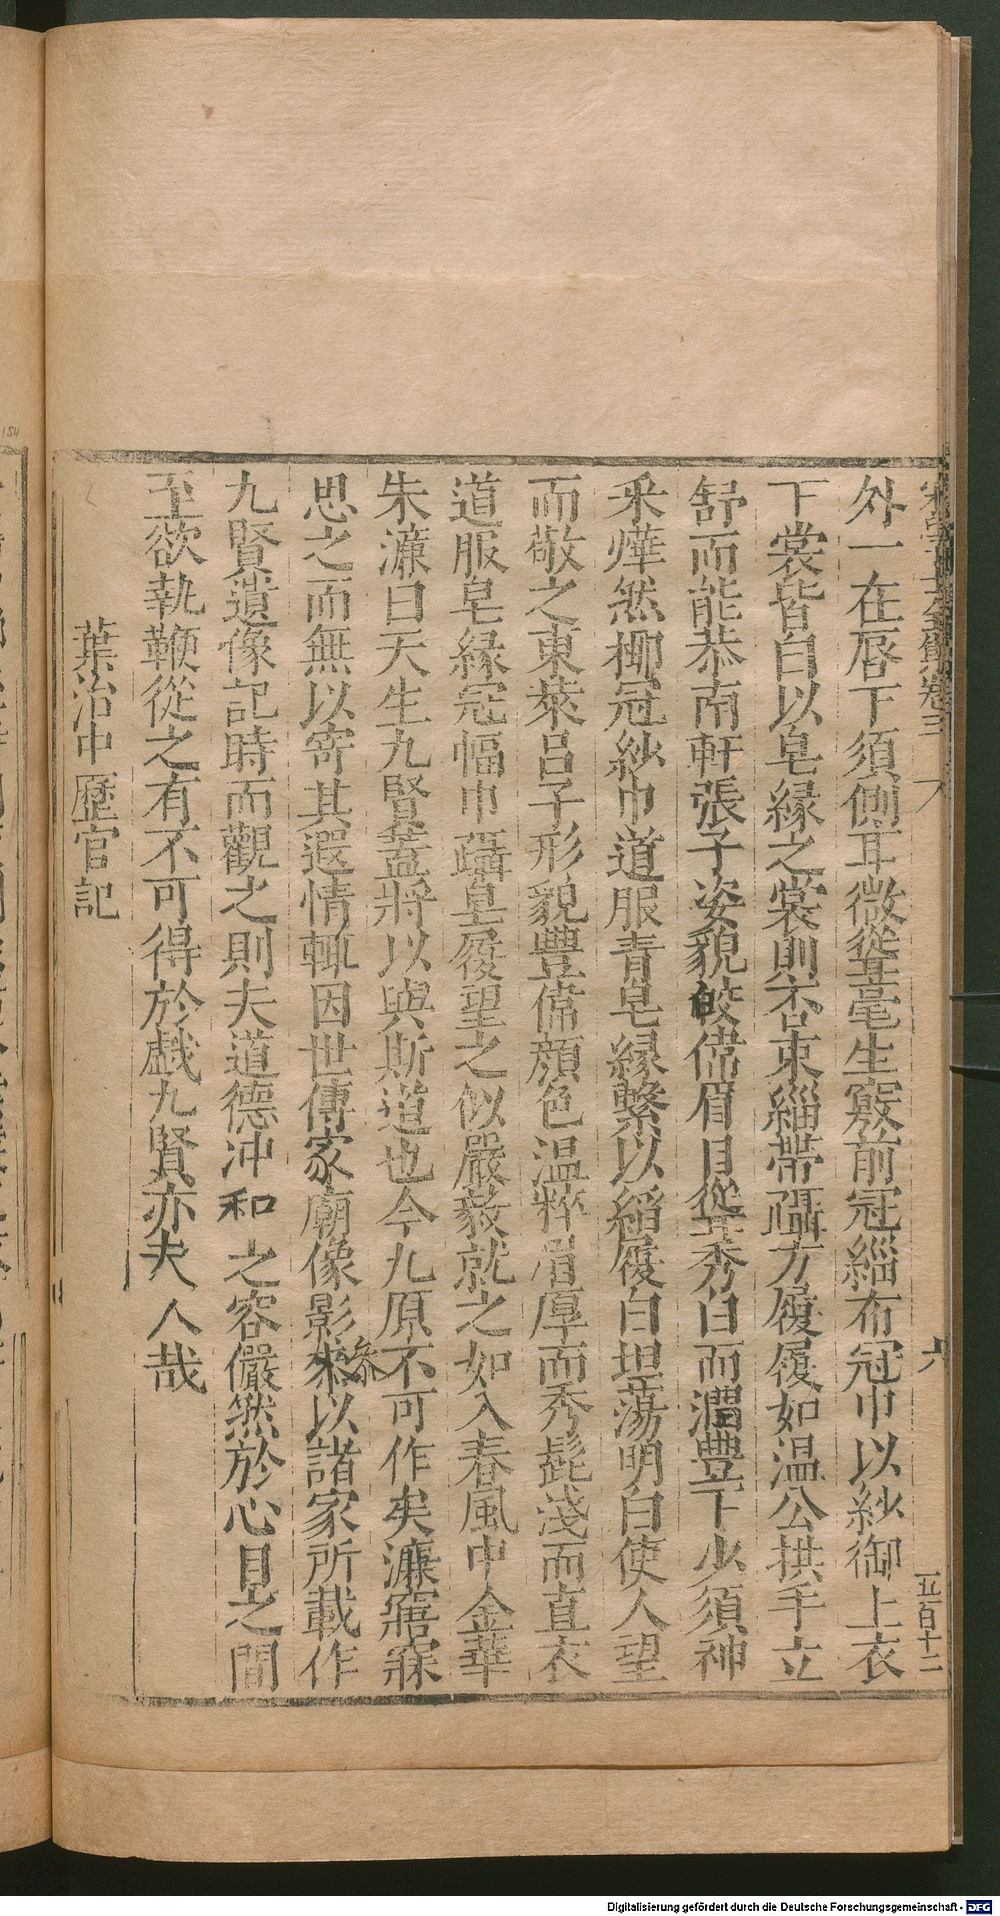 外一在唇下須側耳微聳毫生竅前冠緇布冠巾以紗御上衣
下裳皆白以皂緣之裳則否束緇帶躡方履履如温公拱手立
舒而能恭南軒張子姿貌皎偉眉目聳秀白而潤豐下少須神
采燁然挪冠紗巾道服青皂緣繫以縚履白坦蕩明白使人望
而敬之東萊呂子形貌豐偉顔色温粹眉厚而秀髭淺而直衣
道服皂緣冠幅巾躡皇履望之似嚴毅就之如入春風中金華
朱濂曰天生九賢蓋將以與斯道也今九原不可作矣濂寤寐
思之而無以寄其遐情輒因世傳家廟像影叅以諸家所載作
叅
九賢遺像記時而觀之則夫道德冲和之容儼然於心目之間
至欲執鞭從之有不可得於戲九賢亦夫人哉
葉治中歷官記
卷三
六
五百十二
154
Digitalisierung gefördert durch die Deutsche Forschungsgemeinschaft - DFG